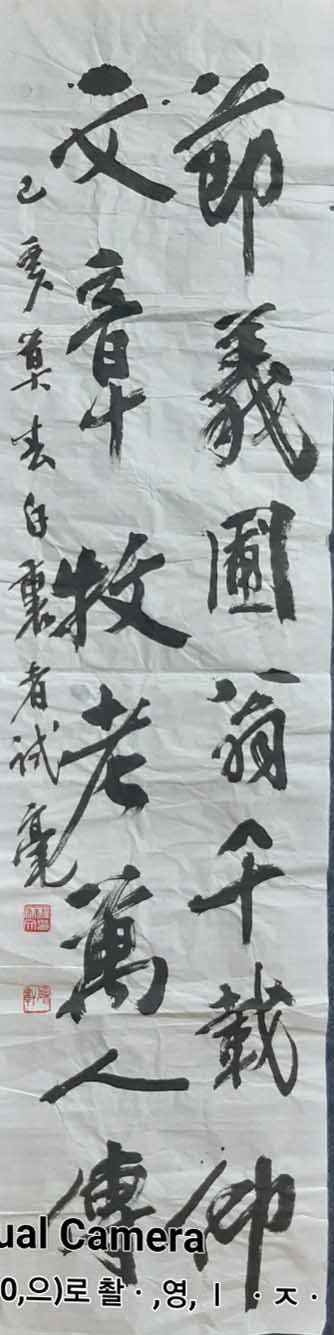 節義圃翁千載仰
文章牧老萬人傳
己亥莫春白裏者試毫
ual Camera
0,으)로 촬·,영, ㅣ ·ㅈ·